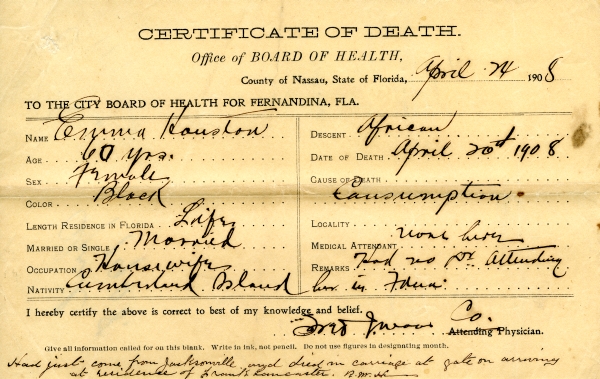 CERTIFICATE OF DEATH.
Office of BOARD OF HEALTH,
County of Nassau, State of Florida, April 24 1908
TO THE CITY BOARD OF HEALTH FOR FERNANDINA, FLA.
NAME Emma Houston
AGE 60 Yrs.
SEX Female
COLOR Black
LENGTH RESIDENCE IN FLORIDA Life
MARRIED OR SINGLE Married
OCCUPATION Housewife
NATIVITY Cumberland Island
DESCENT African
DATE OF DEATH April 20st 1908
CAUSE OF DEATH
Consumption
LOCALITY
MEDICAL ATTENDANT None here
REMARKS Had no Dr Attending
her in Fdna.
I hereby certify the above is correct to best of my knowledge and belief.
Co.
Attending Physician.
Give all information called for on this blank. Write in ink, not pencil. Do not use figures in designating month.
Had just come from Jacksonville and died in carriage at gate on arriving
at residence of Lancaster.